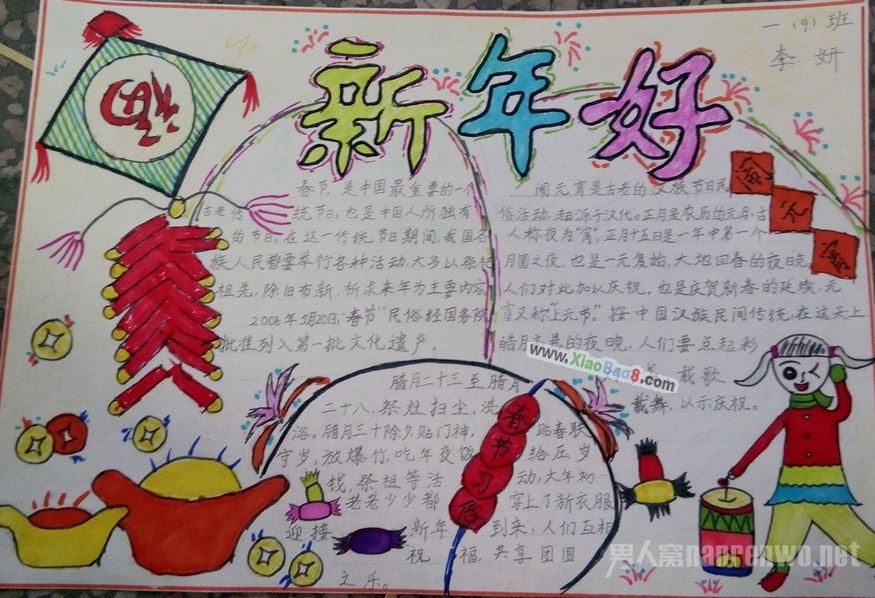 一(9)班
李妍
新年好
福
春节,是中国最重要的一个
古老传统节日,也是中国人所独有
的节日。在这一传统节日期间,我国各
族人民都要举行各种活动,大多以祭祀
祖先,除旧布新,祈求来年为主要内容
2006年5月20日,"春节"民俗经国务院
批准列入第一批文化遗产。
闹元宵
闹元宵是古老的汉族节日民
俗活动,起源于汉代。正月是农历的元月,古
人称夜为"宵",正月十五日是一年中第一个
月圆之夜,也是一元复始,大地回春的夜晚,
人们对此加以庆祝,也是庆贺新春的延续,元
宵又称"上元节"。按中国汉族民间传统,在这天上
皓月高悬的夜晚,人们要点起彩
载歌
载舞,以示庆祝。
春节习俗
腊月二十三至腊月
二十八,祭灶扫尘,洗
浴。腊月三十除夕贴门神,贴春联
守岁,放爆竹,吃年夜饭给压岁
钱,祭祖等活动,大年初一
老老少少都穿上了新衣服
迎接新年到来,人们互相
祝福,共享团圆
之乐。
www.XiaoBao8.com
男人窝nanrenwo.net